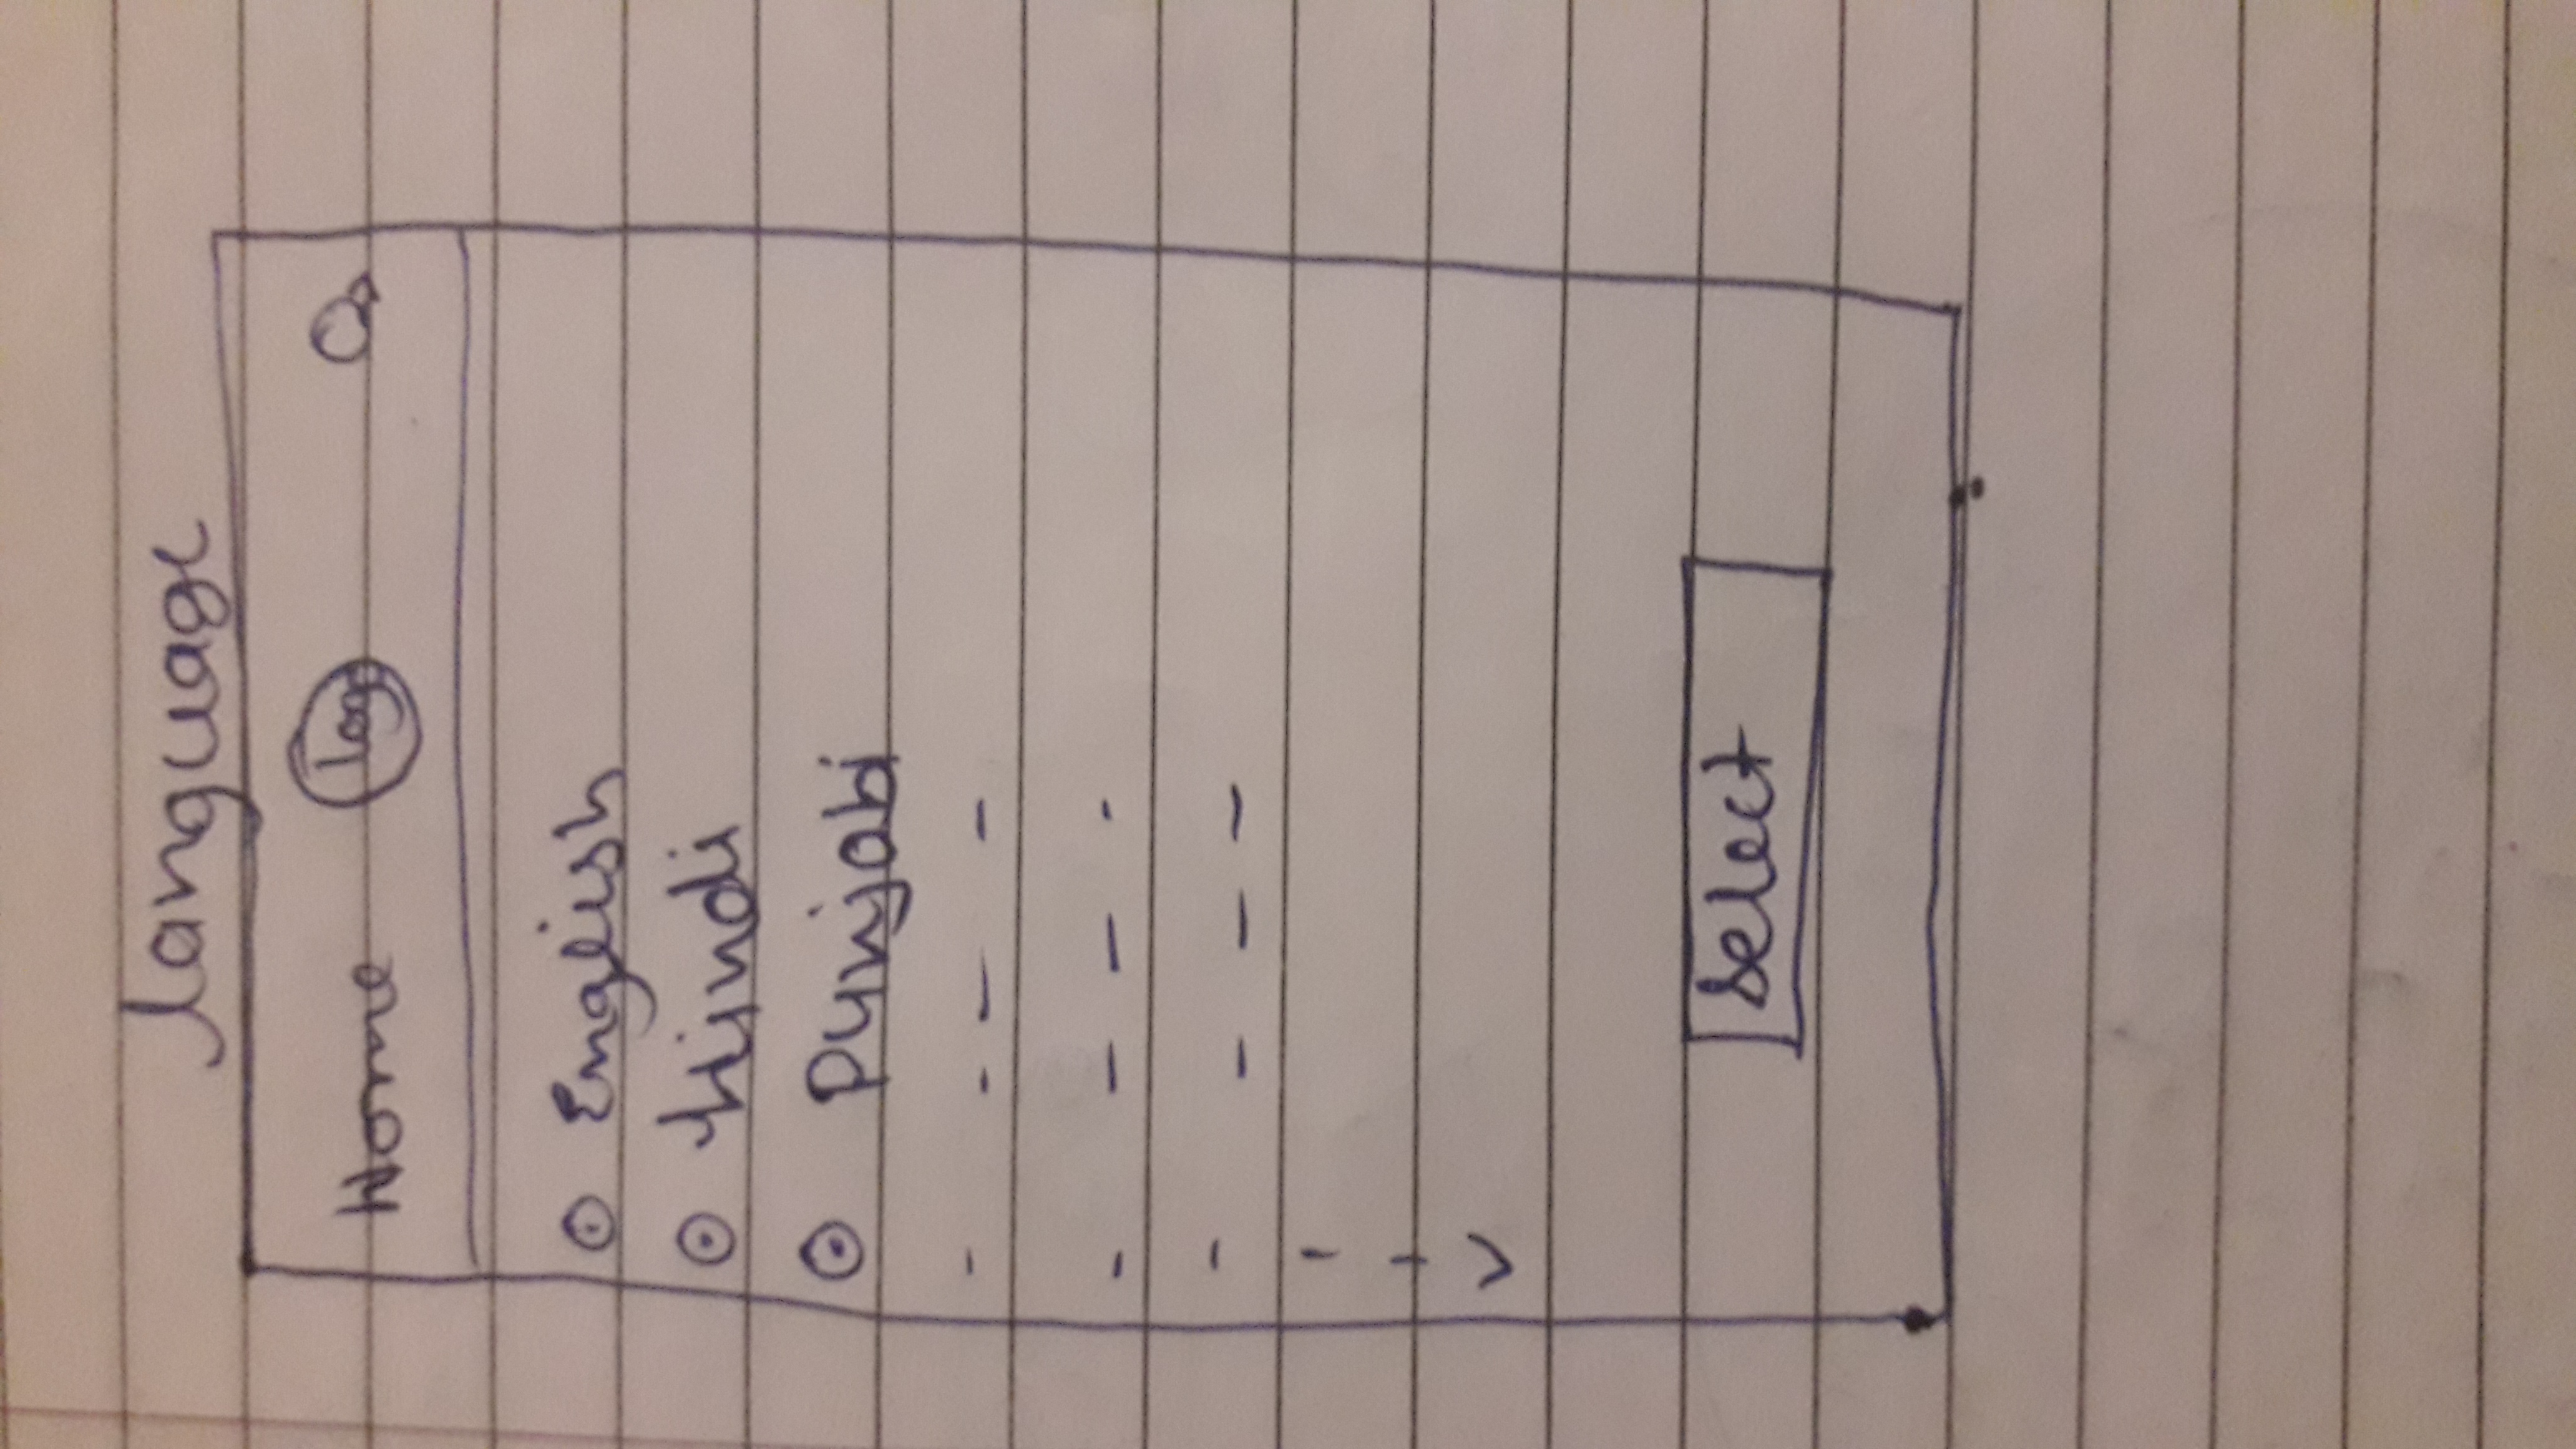 Language
Home Logo
English
Hindi
Punjabi
Select